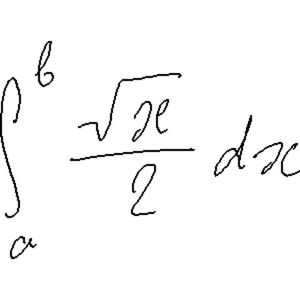 \int_{a}^{b} \frac{\sqrt{x}}{2} dx